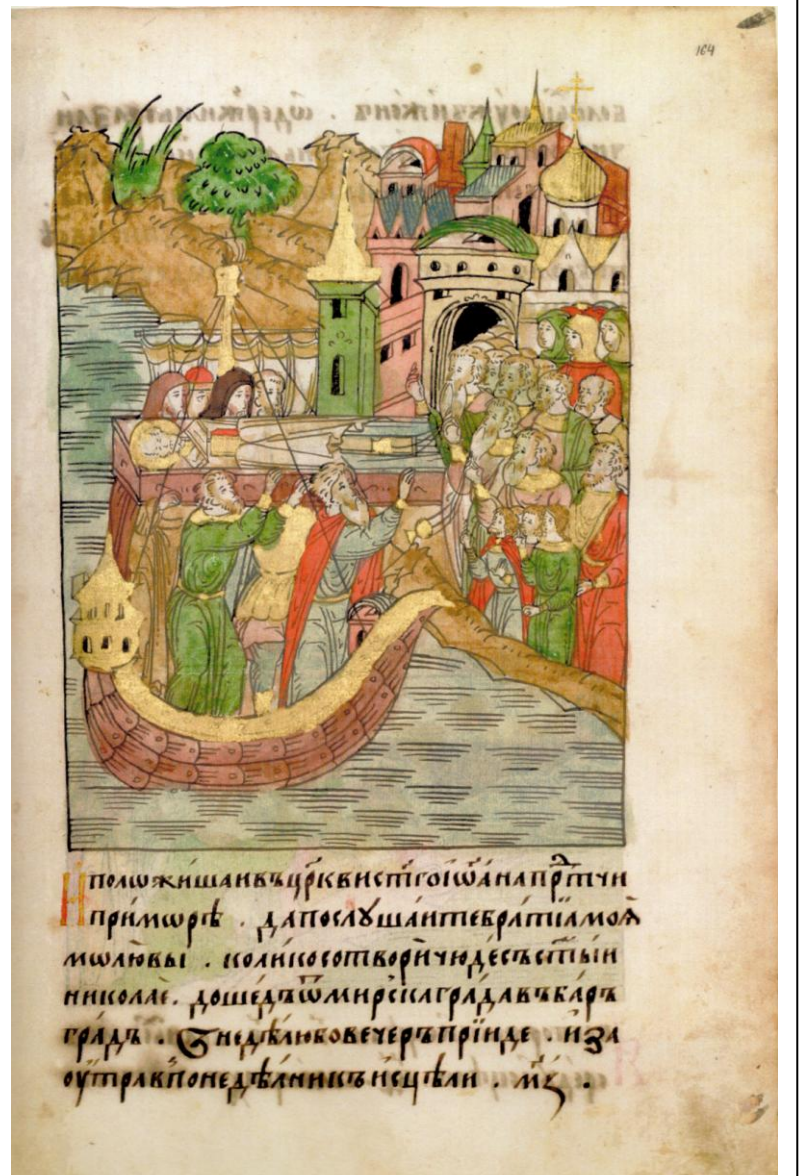 164
И положиша и въ цр҃кви ст҃го іѡа́на прⷣт҃чи
при́ мѡрѣ . да послꙋ́шаите бра́тїѧ моѧ̀
мѡлю вы . коли́ко сотвори̏ чюде́съ ст҃ы́и
николае . доше́дъ ѿ мирⸯска гра́да въ ба́ръ
гра́дъ . Ѕ недѣ́лю бо вечеръ прїи́де . и за
оу́тра в понедѣ́лникъ исцѣли . мз҃ .